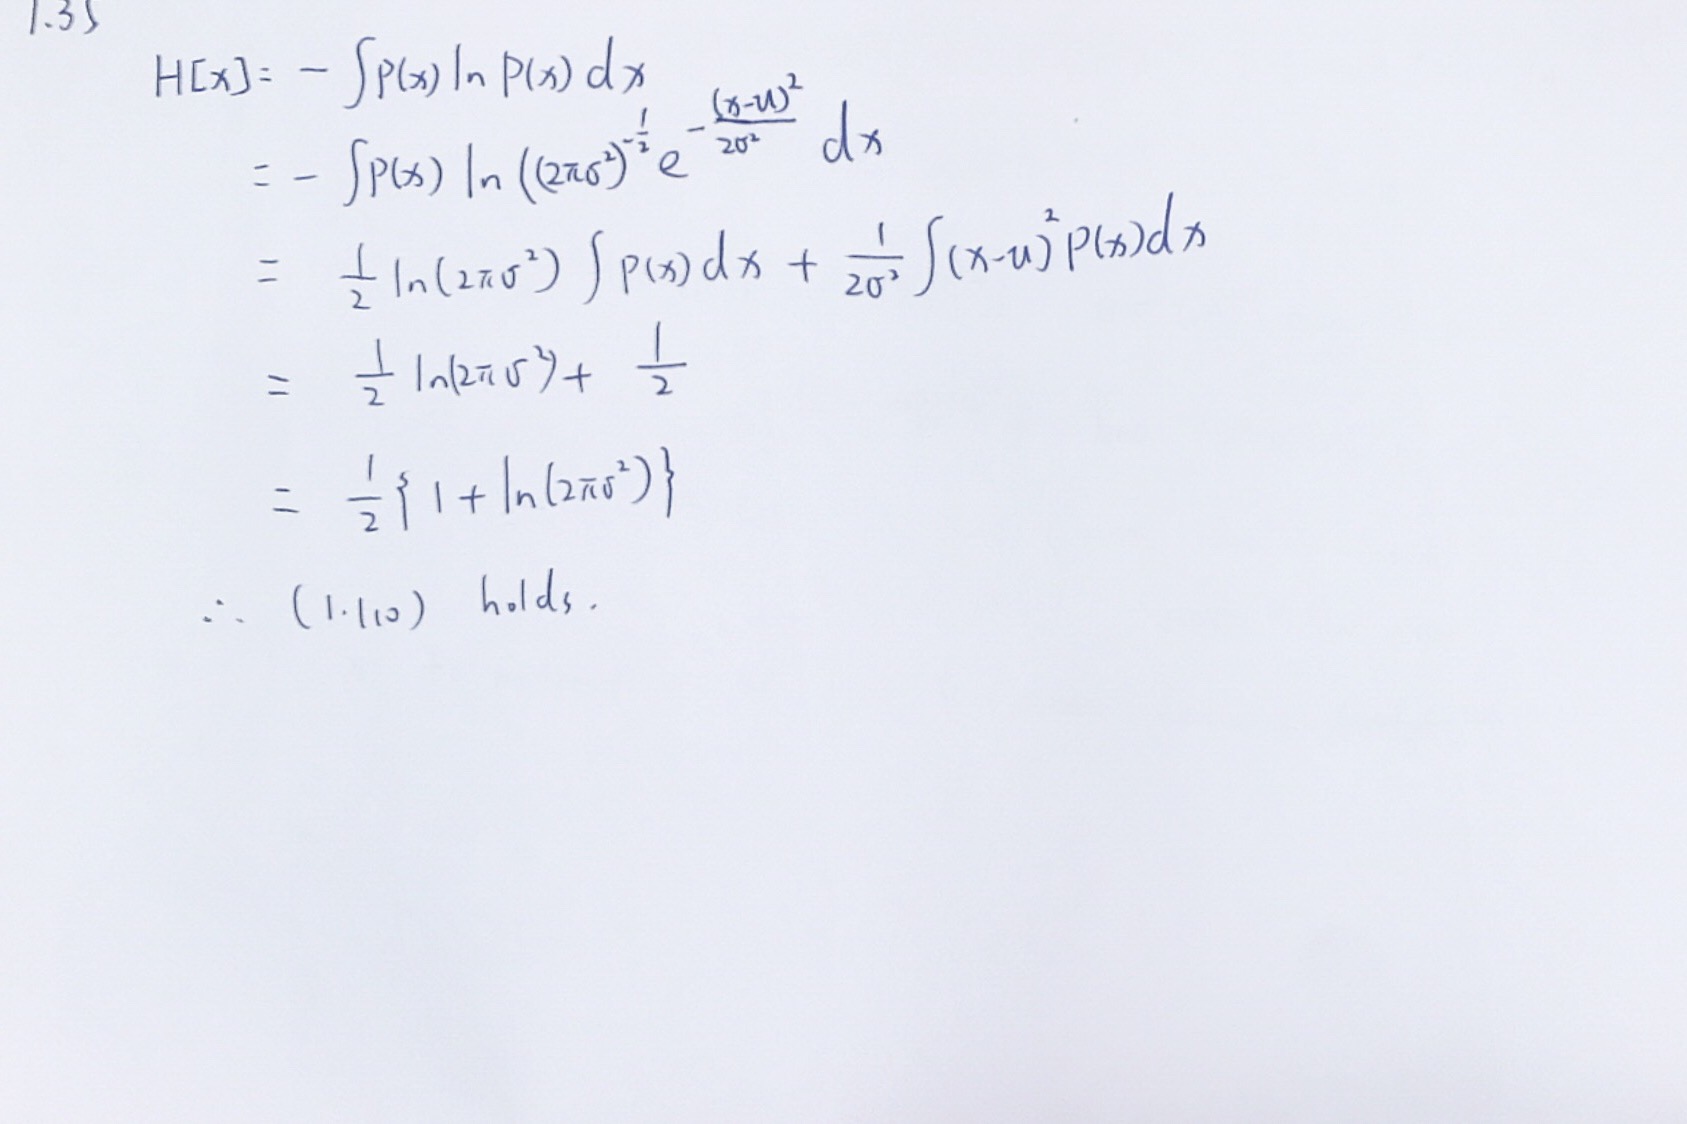 1.35
H[x] = - ∫p(x) ln p(x) dx
= - ∫p(x) ln ((2πσ²)^{-1/2} e^{-(x-u)²/2σ²} dx
= 1/2 ln(2πσ²) ∫ p(x) dx + 1/2σ² ∫(x-u)² p(x) dx
= 1/2 ln(2πσ²) + 1/2
= 1/2 { 1 + ln(2πσ²) }
∴ (1.110) holds.